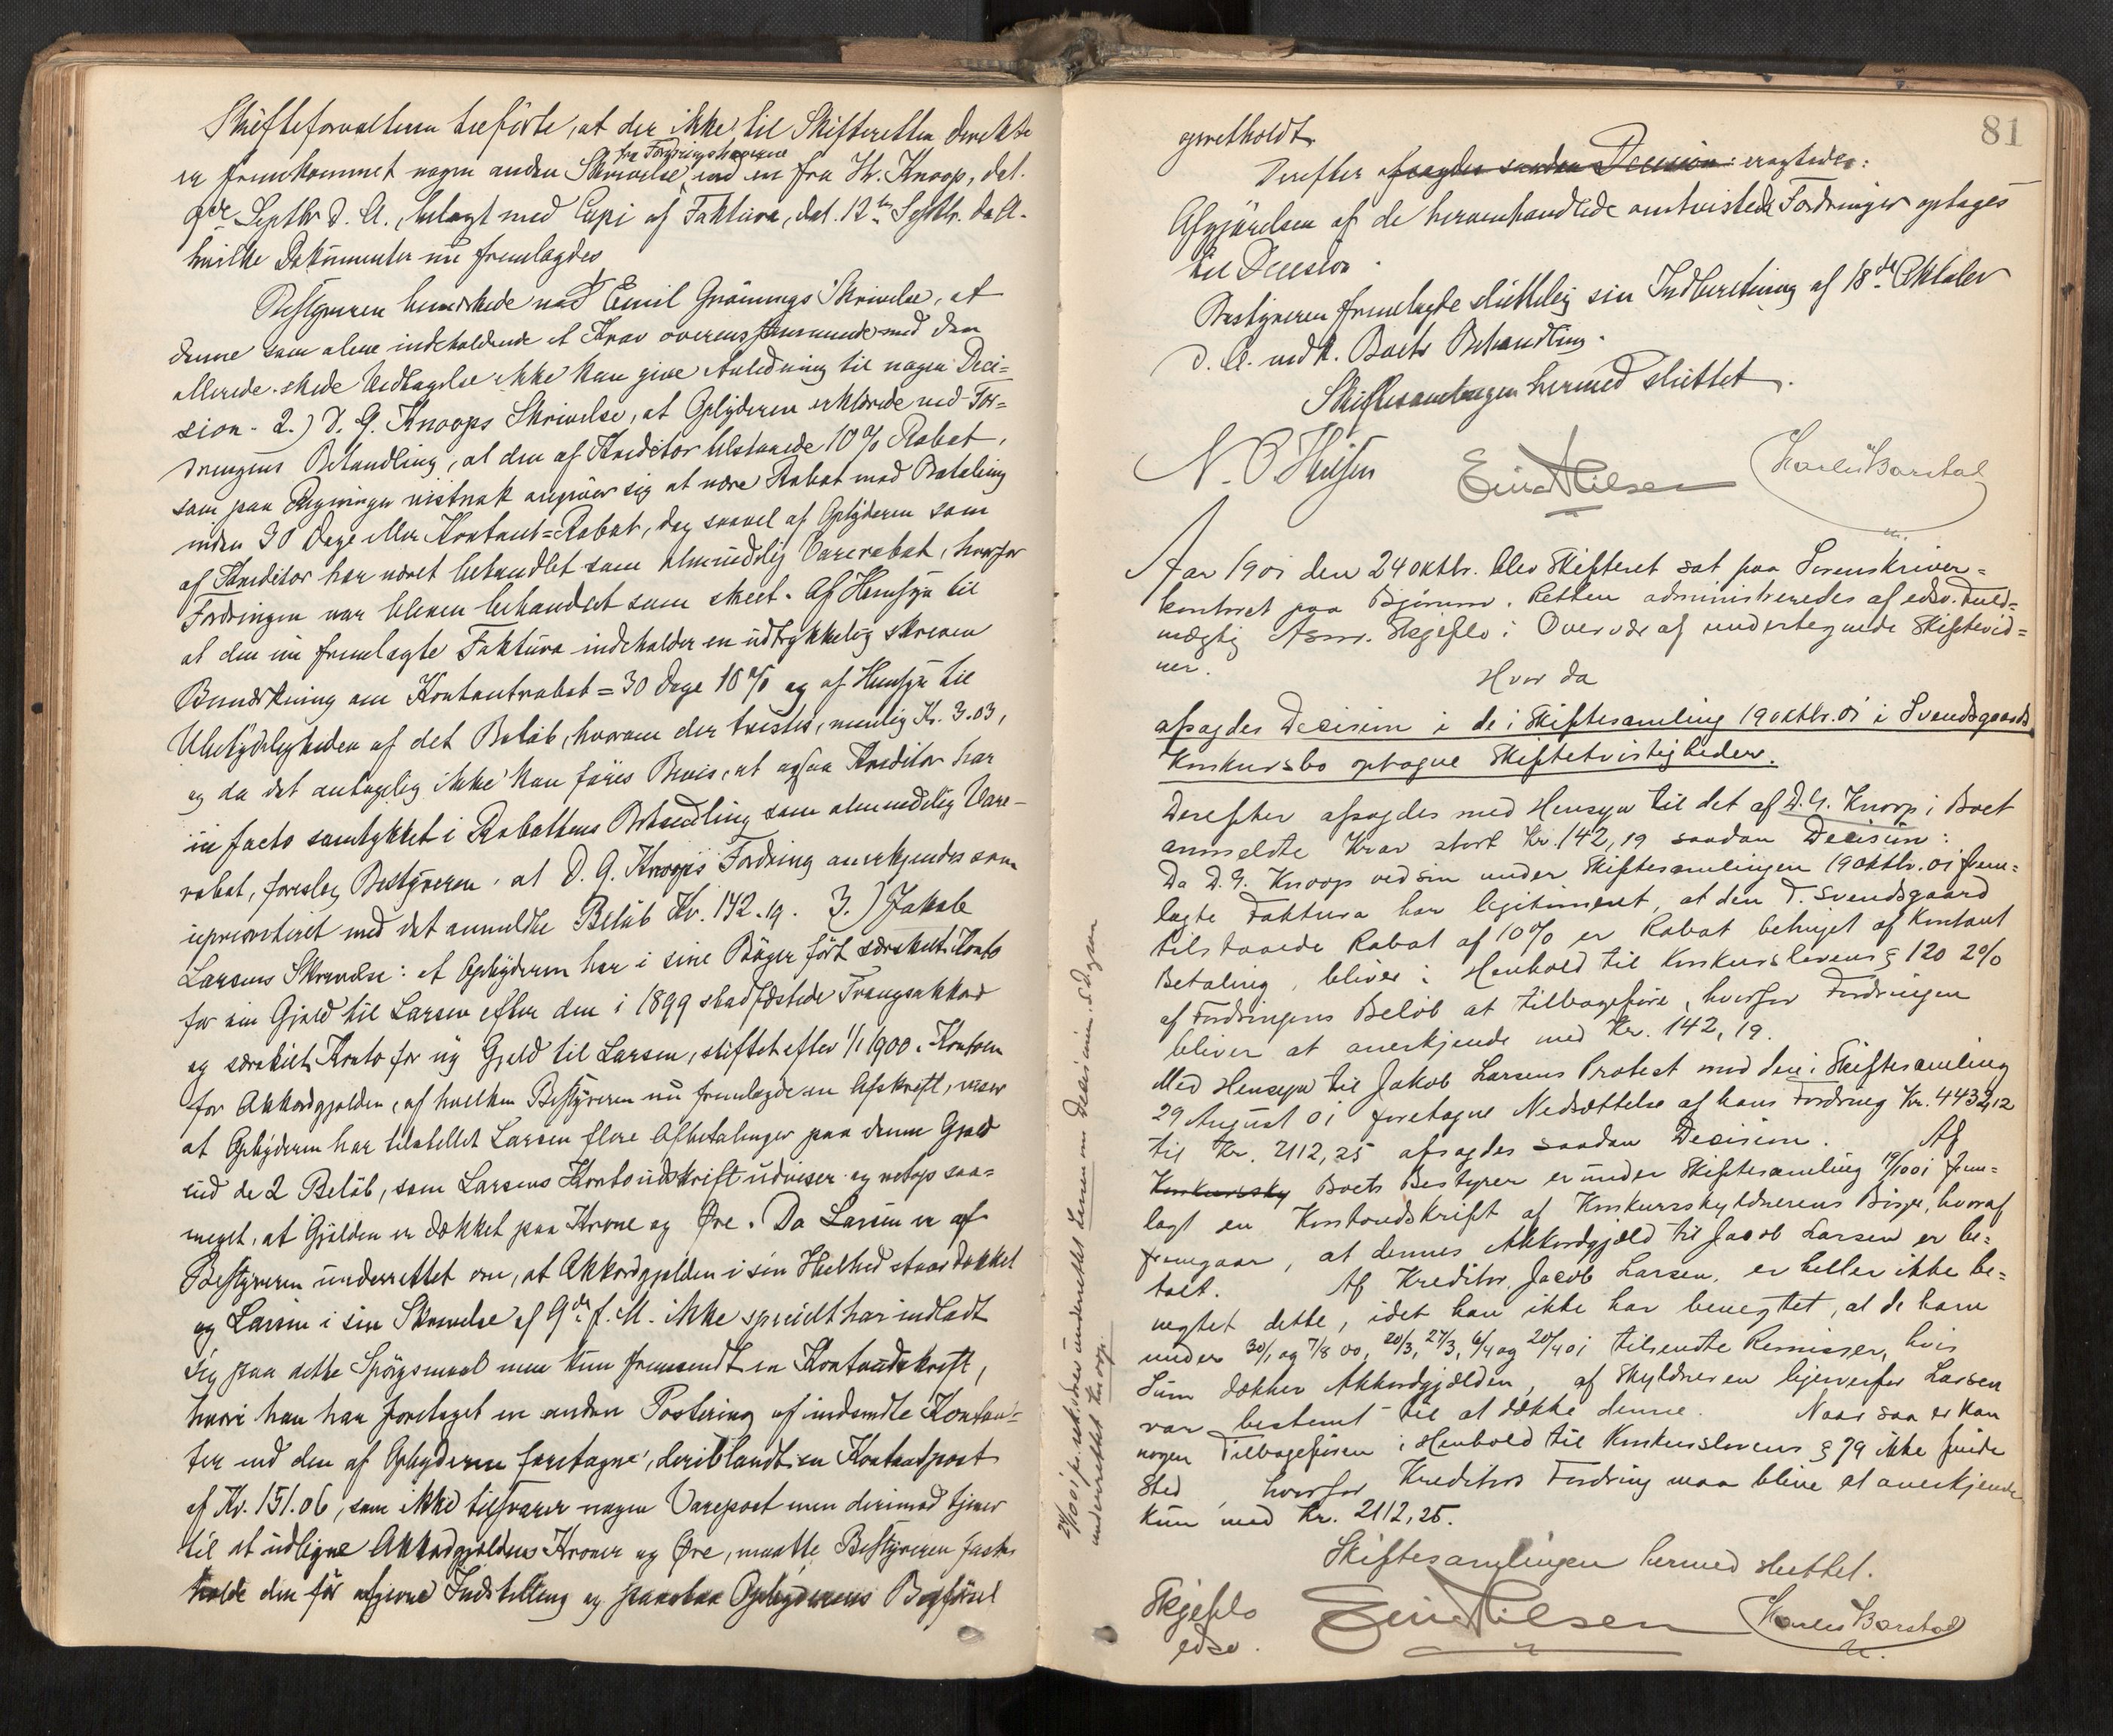 Skifteforvalteren tilførte, at der ikke til Skifteretten direkte
er fremkommet nogen anden Skrivelse fra Fordringshaverne end en fra Hr. Knoop, dat.
9de Septbr d. A., belagt med Copi af Faktura, dat. 12te Septbr. d. A.
hvilke Dokumenter nu fremlagdes
Bestyreren bemerkede ved Emil Grönnings Skrivelse, at
denne som alene indeholdende et Krav overensstemmende med den
allerede skede Vedtagelse ikke kan give Anledning til nogen Deci=
sion. 2.) D. G. Knoops Skrivelse, at Opbyderen erklærede ved For=
dringens Behandling, at den af Kreditor tilstaaede 10% Rabat,
som paa Regninger vistnok angiver sig at være Rabat mod Betaling
inden 30 Dage eller Kontant=Rabat, dog saavel af Opbyderen som
af Kreditor har været behandlet som almindelig Varerabat, hvorfor
Fordringen var bleven behandlet som skeet. Af Hensyn til
at den nu fremlagte Faktura indeholder en udtrykkelig skreven
Bemærkning om Kontantrabat = 30 Dage 10% og af Hensyn til
Ubetydeligheden af det Beløb, hvorom der tvistes, nemlig Kr. 3.03,
og da det antagelig ikke kan føres Bevis, at ogsaa Kreditor har
in facto samtykket i Rabattens Behandling som almindelig Vare-
rabat, foreslog Bestyreren, at D. G. Knoops Fordring anerkjendes som
uprioritert med det anmeldte Beløb Kr. 142.19. 3.) Jakob
Larsens Skrivelse: at Opbyderen har i sine Bøger ført særskilt Konto
for sin Gjæld til Larsen efter den i 1899 stadfæstede Tvangsakkord
og særskilt Konto for ny Gjæld til Larsen, stiftet efter 1/1 1900. Kontoen
for Akkordgjælden, af hvilken Bestyreren nu fremlagde en Afskrift, viser
at Opbyderen har tilstillet Larsen flere Afbetalinger paa denne Gjæld
end de 2 Beløb, som Larsens Kontoudskrift udviser og netop saa=
meget, at Gjælden er dækket paa Krone og Øre. Da Larsen er af
Bestyreren underrettet om, at Akkordgjælden i sin Helhed staar dækket
og Larsen i sin Skrivelse af 9de f. M. ikke specielt har indladt
sig paa dette Spørgsmaal men kun fremsendt en Kontoudskrift,
hvori han har foretaget en anden Postering af indsendte Kontan=
ter end den af Opbyderen foretagne, deriblandt en Kontantpost
af Kr. 151.06, som ikke tilsvarer nogen Varepost men derimod tjener
til at udligne Akkordgjældens Kroner og Øre, maatte Bestyreren fast=
holde den før afgivne Indstilling og paastaa Opbyderens Bogførsel
81
opretholdt.
Derefter afsagdes saadan Decision: eragtedes:
Afgjørelsen af de heromhandlede omtvistede Fordringer optages
til Decision.
Bestyreren fremlagde sluttelig sin Indberetning af 18de Oktober
d. A. vedk. Boets Behandling.
Skiftesamlingen hermed sluttet.
Einar Nilsen Karl Barstad
Aar 1901 den 24 oktbr. blev Skifteret sat paa Sorenskriver=
kontoret paa Bjørum. Retten administreredes af edsv. Fuld=
mægtig Skjeflo i Overvær af undertegnede Skiftevid=
ner.
Hvor da
afsagdes Decision i de i Skiftesamling 19 oktbr. 01 i Svendsgaards
Konkursbo optagne Skiftetvistigheder.
Derefter afsagdes med Hensyn til det af D. G. Knoop i Boet
anmeldte Krav stort Kr. 142,19 saadan Decision:
Da D. G. Knoop ved sin under Skiftesamlingen 19 oktbr. 01 frem=
lagte Faktura har legitimeret, at den T. Svendsgaard
tilstaaede Rabat af 10% er Rabat betinget af Kontant
Betaling, bliver i Henhold til Konkurslovens § 120 2%
af Fordringens Beløb at tilbageføre, hvorfor Fordringen
bliver at anerkjende med Kr. 142,19.
Med Hensyn til Jakob Larsens Protest mod den i Skiftesamling
29 August 01 foretagne Nedsættelse af hans Fordring Kr. 4432,12
til Kr. 2112,25 afsagdes saadan Decision. Af
Konkurssky Boets Bestyrer er under Skiftesamling 19/10 01 frem=
lagt en Kontoudskrift af Konkursskyldnerens Bøger, hvoraf
fremgaar, at dennes Akkordgjæld til Jacob Larsen er be=
talt. Af Kreditor, Jacob Larsen, er heller ikke be=
negtet dette, idet han ikke har benegtet, at de ham
under 30/1 og 7/8 00, 20/3, 27/3, 6/4 og 20/4 01 tilsendte Remisser, hvis
Sum dækker Akkordgjælden, af Skyldneren ligeoverfor Larsen
var bestemt til at dække denne. Naar saa er kan
nogen Tilbageførsen i Henhold til Konkurslovens § 79 ikke finde
Sted, hvorfor Kreditors Fordring maa blive at anerkjende
kun med Kr. 2112,25.
Skiftesamlingen hermed sluttet.
Skjeflo Einar Nilsen Karl Barstad
edsv.
24/10 01 underrettet Larsen om Decisionen. S. D. ogsaa
underrettet Knoop.